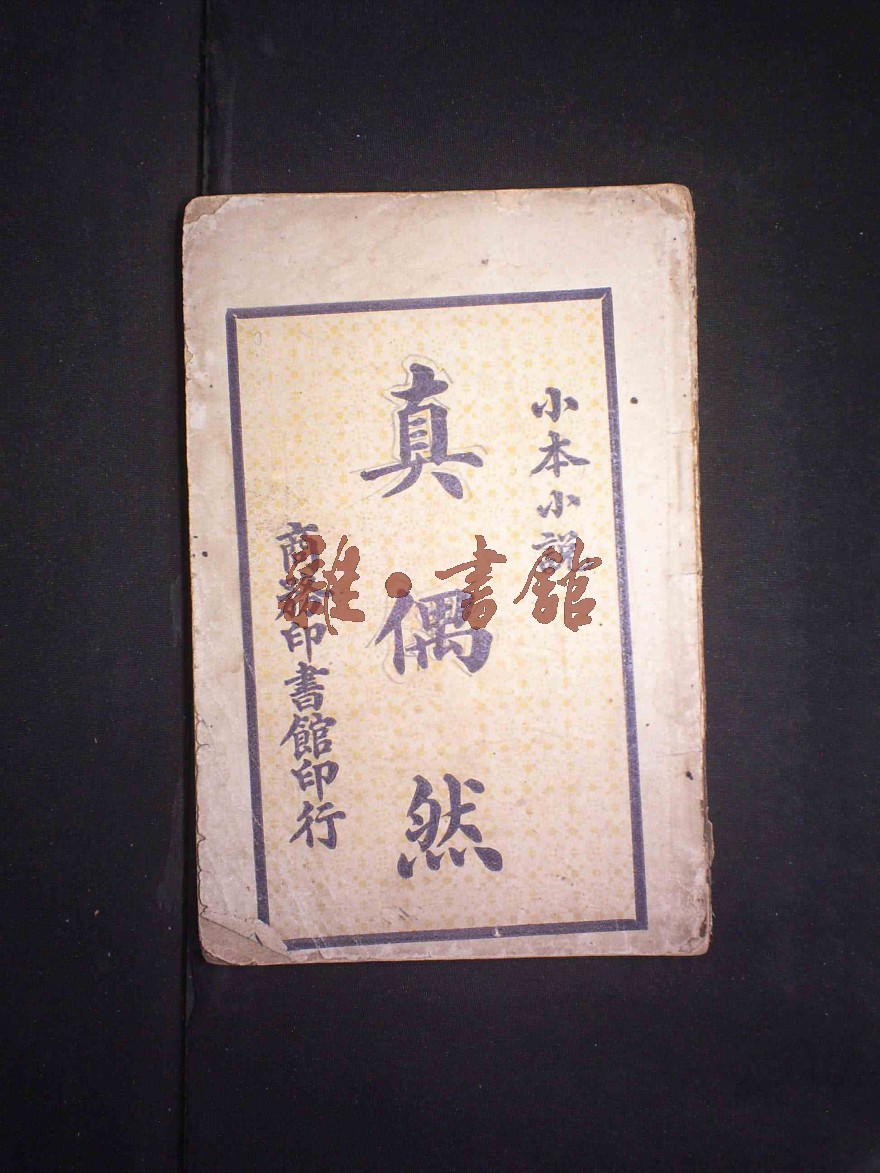 小本小説
真偶然
商務印書館印行
雜·書館